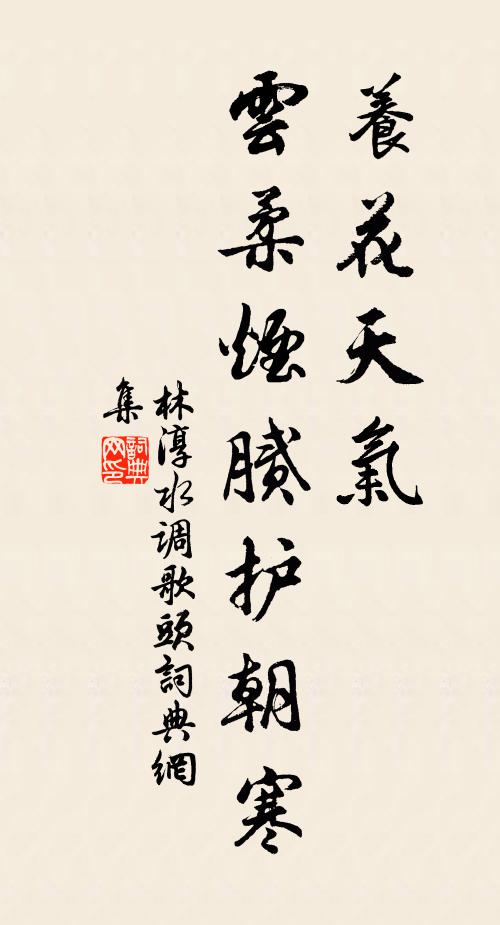 養花天氣
雲柔煙膩护朝寒
林淳水调歌頭詞典網
集
詞典网印